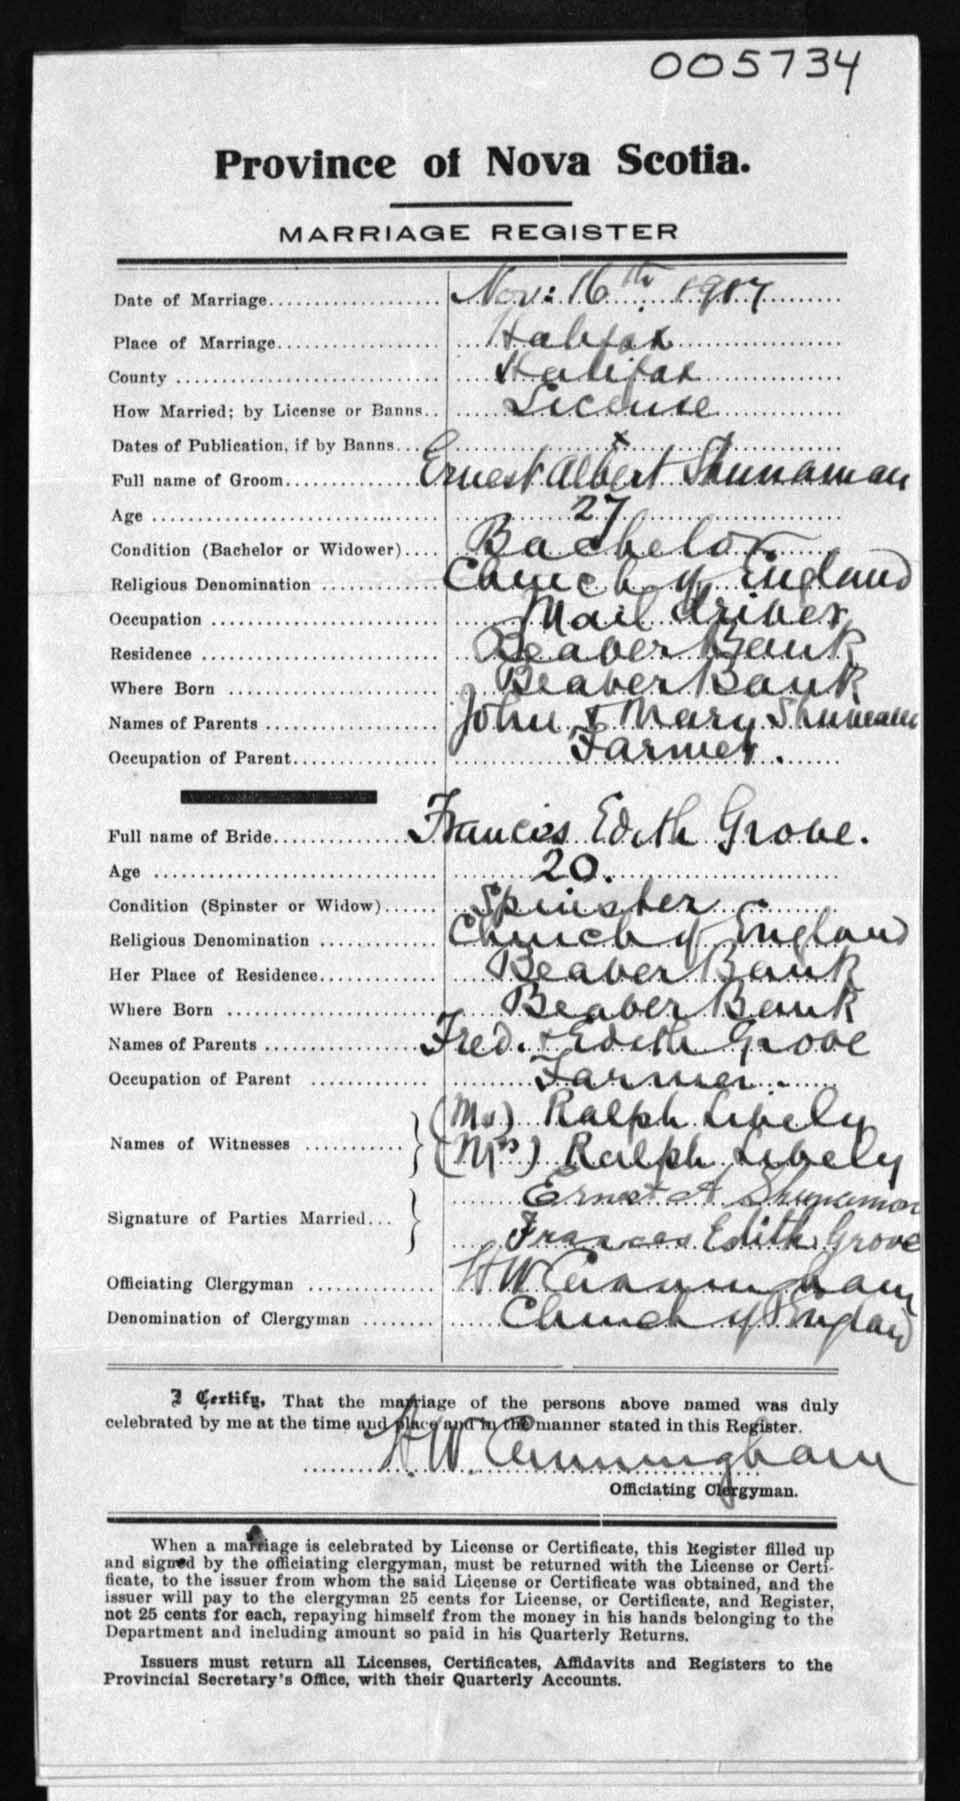 005734
Province of Nova Scotia.
MARRIAGE REGISTER
Date of Marriage Nov: 16th 1917
Place of Marriage Halifax
County Halifax
How Married; by License or Banns License
Dates of Publication, if by Banns x
Full name of Groom Ernest Albert Shunaman
Age 27
Condition (Bachelor or Widower) Bachelor
Religious Denomination Church of England
Occupation Mail driver
Residence Beaver Bank
Where Born Beaver Bank
Names of Parents John & Mary Shunaman
Occupation of Parent Farmer.
Full name of Bride Francis Edith Grove.
Age 20.
Condition (Spinster or Widow) Spinster
Religious Denomination Church of England
Her Place of Residence Beaver Bank
Where Born Beaver Bank
Names of Parents Fred. & Edith Grove
Occupation of Parent Farmer.
(Mr) Ralph Lively
Names of Witnesses
(Mrs) Ralph Lively
Ernest A Shunamon
Signature of Parties Married
Frances Edith Grove
Officiating Clergyman H W Cunningham
Denomination of Clergyman Church of England
I Certify, That the marriage of the persons above named was duly
celebrated by me at the time and place and in the manner stated in this Register.
H. W. Cunningham
Officiating Clergyman.
When a marriage is celebrated by License or Certificate, this Register filled up
and signed by the officiating clergyman, must be returned with the License or Certi-
ficate, to the issuer from whom the said License or Certificate was obtained, and the
issuer will pay to the clergyman 25 cents for License, or Certificate, and Register,
not 25 cents for each, repaying himself from the money in his hands belonging to the
Department and including amount so paid in his Quarterly Returns.
Issuers must return all Licenses, Certificates, Affidavits and Registers to the
Provincial Secretary's Office, with their Quarterly Accounts.